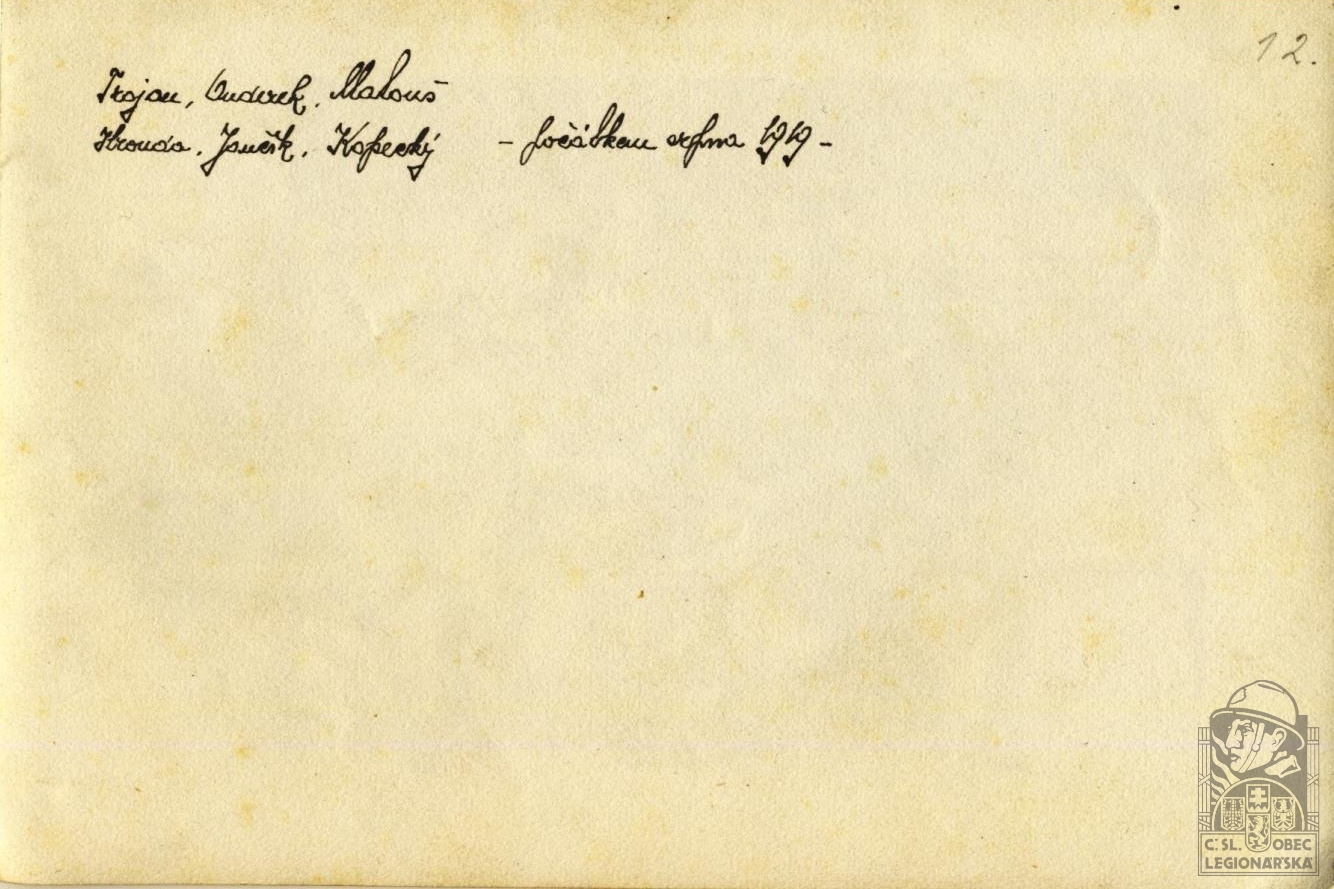 12.
Trojan, Onderek, Matouš
Hronda, Jančík, Kopecký - počátkem srpna 1919 -
Č.SL. OBEC
LEGIONÁŘSKÁ